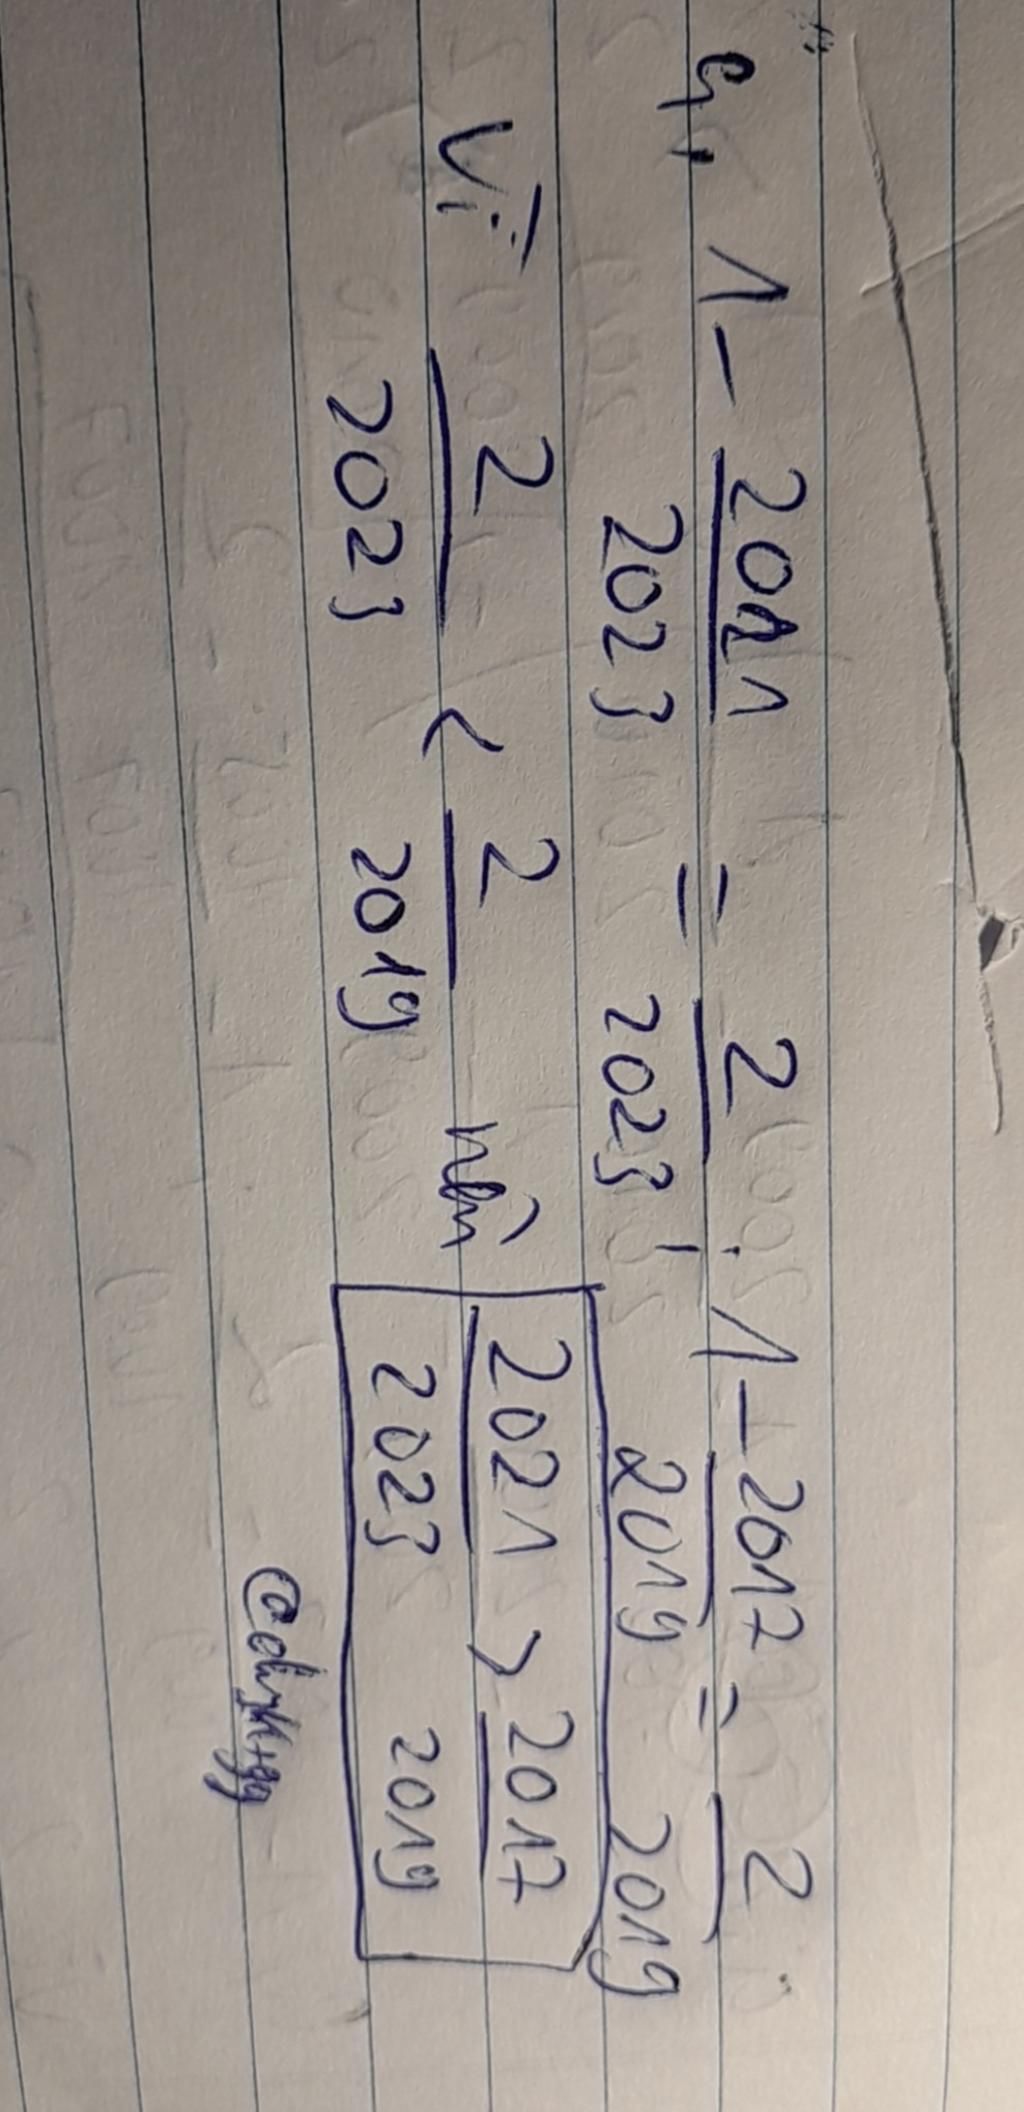 e, 1 - 2021/2023 = 2/2023 ; 1 - 2017/2019 = 2/2019
Vì 2/2023 < 2/2019 nên 2021/2023 > 2017/2019